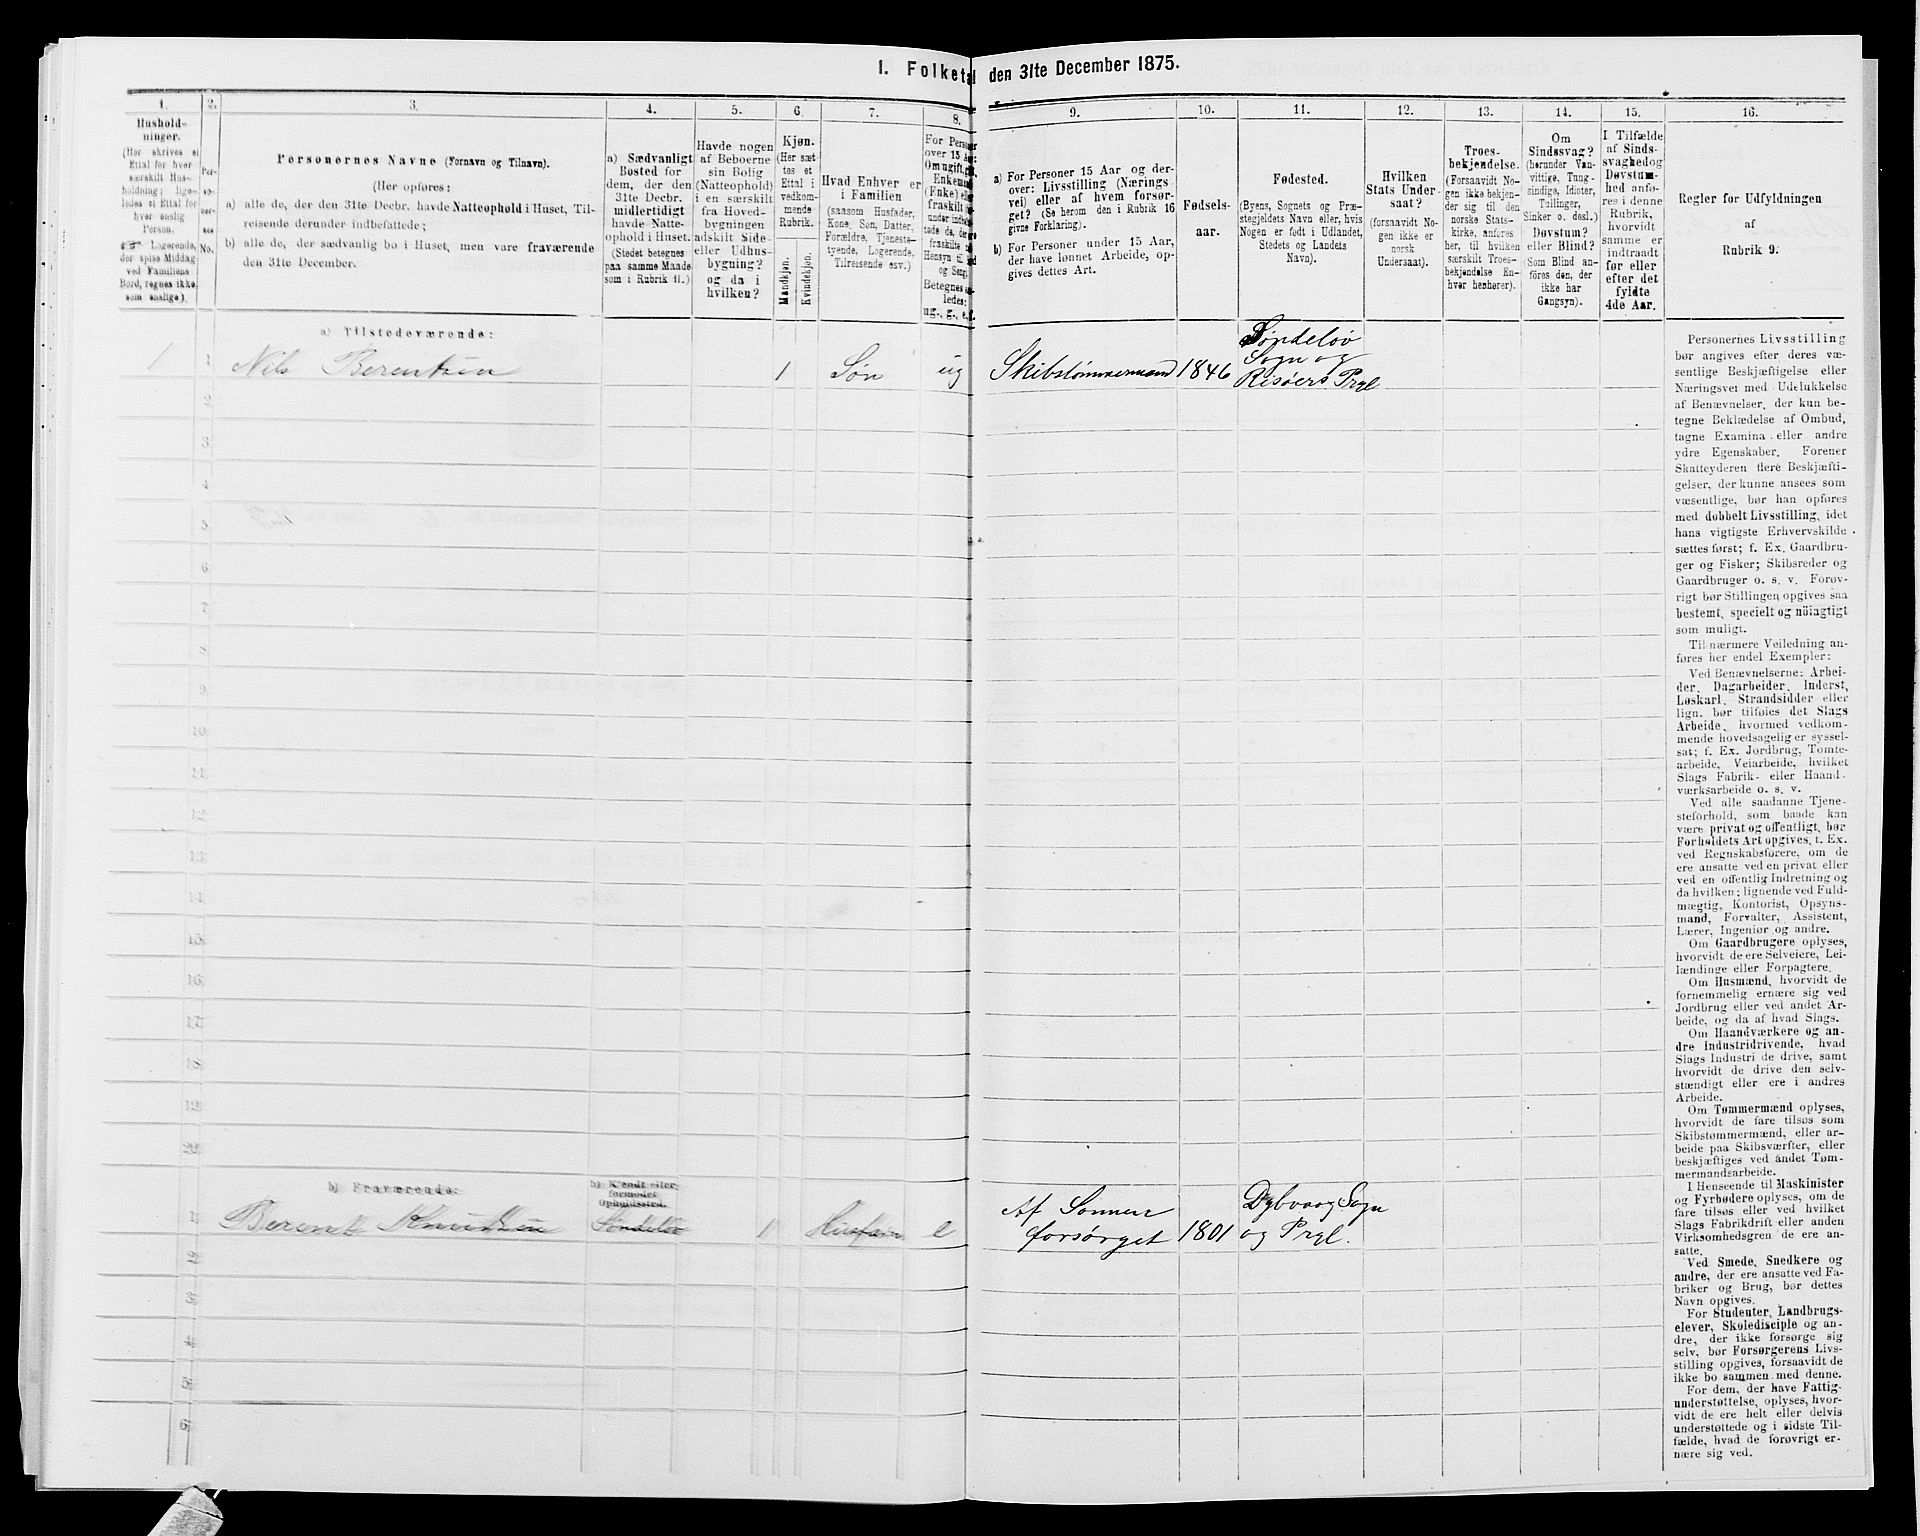 1. Folketal den 31te December 1875.
1.
Hushold-
ninger.
(Her skrives et
Ettal for hver
særskilt Hus-
holdning; lige-
ledes et Ettal for
hver enslig
Person.
Logerende,
der spise Middag
ved Familiens
Bord, regnes ikke
som enslige).
2.
Per-
so-
ner-
nes
No.
3.
Personernes Navne (Fornavn og Tilnavn).
(Her opføres:
a) alle de, der den 31te Decbr. havde Natteophold i Huset, Til-
reisende derunder indbefattede;
b) alle de, der sædvanlig bo i Huset, men vare fraværende
den 31te December.
4.
a) Sædvanligt
Bosted for
dem, der den
31te Decbr.
midlertidigt
havde Natte-
ophold i Huset.
(Stedet betegnes
paa samme Maade
som i Rubrik 11.)
5.
Havde nogen
af Beboerne
sin Bolig
(Natteophold)
i en særskilt
fra Hoved-
bygningen
adskilt Side-
eller Udhus-
bygning?
og da i
hvilken?
6.
Kjøn.
(Her sæt-
tes et
Ettal i
vedkom-
mende
Rubrik.
Mandkjøn.
Kvindekjøn.
7.
Hvad Enhver er
i Familien
(saasom Husfader,
Kone, Søn, Datter,
Forældre, Tjeneste-
tyende, Logerende,
Tilreisende osv.)
8.
For Personer
over 15 Aar:
Om ugift, gift,
Enkemand
(Enke) eller
fraskilt
Betegnes saa-
ledes:
ug., g., e., f.
9.
a) For Personer 15 Aar og der-
over: Livsstilling (Nærings-
vei) eller af hvem forsør-
get? (Se herom den i Rubrik 16
givne Forklaring).
b) For Personer under 15 Aar,
der have lønnet Arbeide, op-
gives dettes Art.
10.
Fødsels-
aar.
11.
Fødested.
(Byens, Sognets og Præ-
stegjeldets Navn eller, hvis
Nogen er født i Udlandet,
Stedets og Landets
Navn).
12.
Hvilken
Stats Under-
saat?
(forsaavidt No-
gen ikke er
norsk
Undersaat).
13.
Troes-
bekjendelse.
(Forsaavidt No-
gen ikke bekjen-
der sig til den
norske Stats-
kirke, anføres
her, til hvilken
særskilt Troes-
bekjendelse En-
hver henhører).
14.
Om
Sindssvag?
(herunder Van-
vittige, Tung-
sindige, Idioter,
Tullinger,
Sinker o. desl.)
Døvstum?
eller Blind?
(Som Blind an-
føres den, der
ikke har
Gangsyn).
15.
I Tilfælde
af Sinds-
svaghed og
Døvstum-
hed anfø-
res i denne
Rubrik,
hvorvidt
samme er
indtraadt
før eller
efter det
fyldte
4de Aar.
16.
Regler for Udfyldningen
af
Rubrik 9.
a) Tilstedeværende:
1 1 Nils Berentsen 1 Søn ug Skibstømmermand 1846 Søndeløv
Sogn og
Risøers Prgl
2
3
4
5
6
7
8
9
10
11
12
13
14
15
16
17
18
19
20
b) Fraværende:
b) Kjendt eller
formodet
Opholdssted.
1 Berent Knudsen Søndeløv 1 Husfader e Af Sønnen
forsørget 1801 Dybvaag Sogn
og Prgl.
2
3
4
5
6
Personernes Livsstilling
bør angives efter deres væ-
sentlige Beskjæftigelse eller
Næringsvei med Udelukkelse
af Benævnelser, der kun be-
tegne Beklædelse af Ombud,
tagne Examina eller andre
ydre Egenskaber. Forener
Skatteyderen flere Beskjæfti-
gelser, der kunne ansees som
væsentlige, bør han opføres
med dobbelt Livsstilling, idet
hans vigtigste Erhvervskilde
sættes først; f. Ex. Gaardbru-
ger og Fisker; Skibsreder og
Gaardbruger o. s. v. Forøv-
rigt bør Stillingen opgives saa
bestemt, specielt og nöiagtigt
som muligt.
Til nærmere Veiledning an-
føres her endel Exempler:
Ved Benævnelserne: Arbei-
der, Dagarbeider, Inderst,
Løskarl, Strandsidder eller
lign. bør tilføies det Slags
Arbeide, hvormed vedkom-
mende hovedsagelig er syssel-
sat; f. Ex. Jordbrug, Tomte-
arbeide, Veiarbeide, hvilket
Slags Fabrik- eller Haand-
værksarbeide o. s. v.
Ved alle saadanne Tjene-
steforhold, som baade kan
være privat og offentligt, bør
Forholdets Art opgives, t. Ex.
ved Regnskabsførere, om de
ere ansatte ved en privat eller
ved en offentlig Indretning og
da hvilken; lignende ved Fuld-
mægtig, Kontorist, Opsyns-
mand, Forvalter, Assistent,
Lærer, Ingeniør og andre.
Om Gaardbrugere oplyses,
hvorvidt de ere Selveiere, Lei-
lændinge eller Forpagtere.
Om Husmænd, hvorvidt de
fornemmelig ernære sig ved
Jordbrug eller ved andet Ar-
beide, og da af hvad Slags.
Om Haandværkere og an-
dre Industridrivende, hvad
Slags Industri de drive, samt
hvorvidt de drive den selv-
stændigt eller ere i andres
Arbeide.
Om Tømmermænd oplyses,
hvorvidt de fare tilsøs som
Skibstømmermænd, eller ar-
beide paa Skibsværfter, eller
beskjæftiges ved andet Tøm-
mermandsarbeide.
I Henseende til Maskinister
og Fyrbødere oplyses, om de
fare tilsøs eller ved hvilket
Slags Fabrikdrift eller anden
Virksomhedsgren de ere an-
satte.
Ved Smede, Snedkere og
andre, der ere ansatte ved Fa-
briker og Brug, bør dettes
Navn opgives.
For Studenter, Landbrugs-
elever, Skoledisciple og an-
dre, der ikke forsørge sig
selv, bør Forsørgerens Livs-
stilling opgives, forsaavidt de
ikke bo sammen med denne.
For dem, der have Fattig-
understøttelse, oplyses, hvor-
vidt de ere helt eller delvis
understøttede og i sidste Til-
fælde, hvad de forøvrigt er-
nære sig ved.